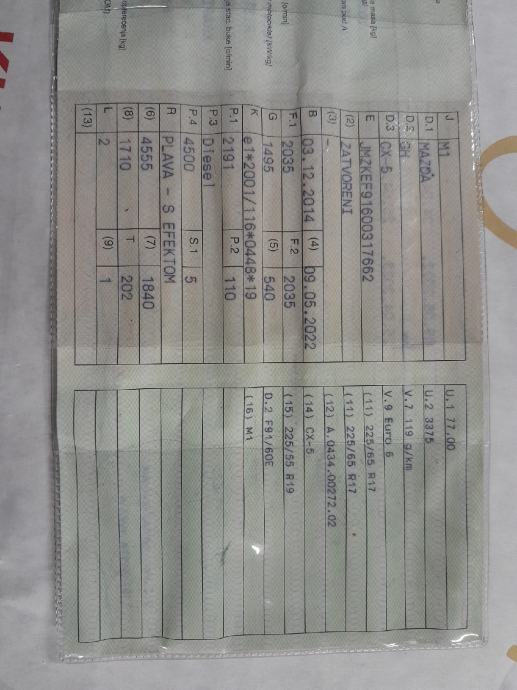 J M1
D.1 MAZDA
D.2 GH
D.3 CX-5
E JMZKEF91600317662
(2) ZATVORENI
(3) -
B 03.12.2014 (4) 09.05.2022
F.1 2035 F.2 2035
G 1495 (5) 540
K e1*2001/116*0448*19
P.1 2191 P.2 110
P.3 Diesel
P.4 4500 S.1 5
R PLAVA - S EFEKTOM
(6) 4555 (7) 1840
(8) 1710 T 202
L 2 (9) 1
(13)
U.1 77,00
U.2 3375
V.7 119 g/km
V.9 Euro 6
(11) 225/65 R17
(11) 225/65 R17
(12) A.0434.00272.02
(14) CX-5
(15) 225/55 R19
D.2 F91/60E
(16) M1